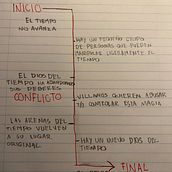 INICIO
EL TIEMPO
NO AVANZA
HAY UN PEQUEÑO GRUPO
DE PERSONAS QUE PUEDEN
MANIPULAR LIGERAMENTE EL
TIEMPO
EL DIOS DEL
TIEMPO HA ABANDONADO
SUS DEBERES
CONFLICTO
VILLANOS QUIEREN ABUSAR
Y/O CONTROLAR ESTA MAGIA
LAS ARENAS DEL
TIEMPO VUELVEN
A SU LUGAR
ORIGINAL
HAY UN NUEVO DIOS DEL
TIEMPO
FINAL